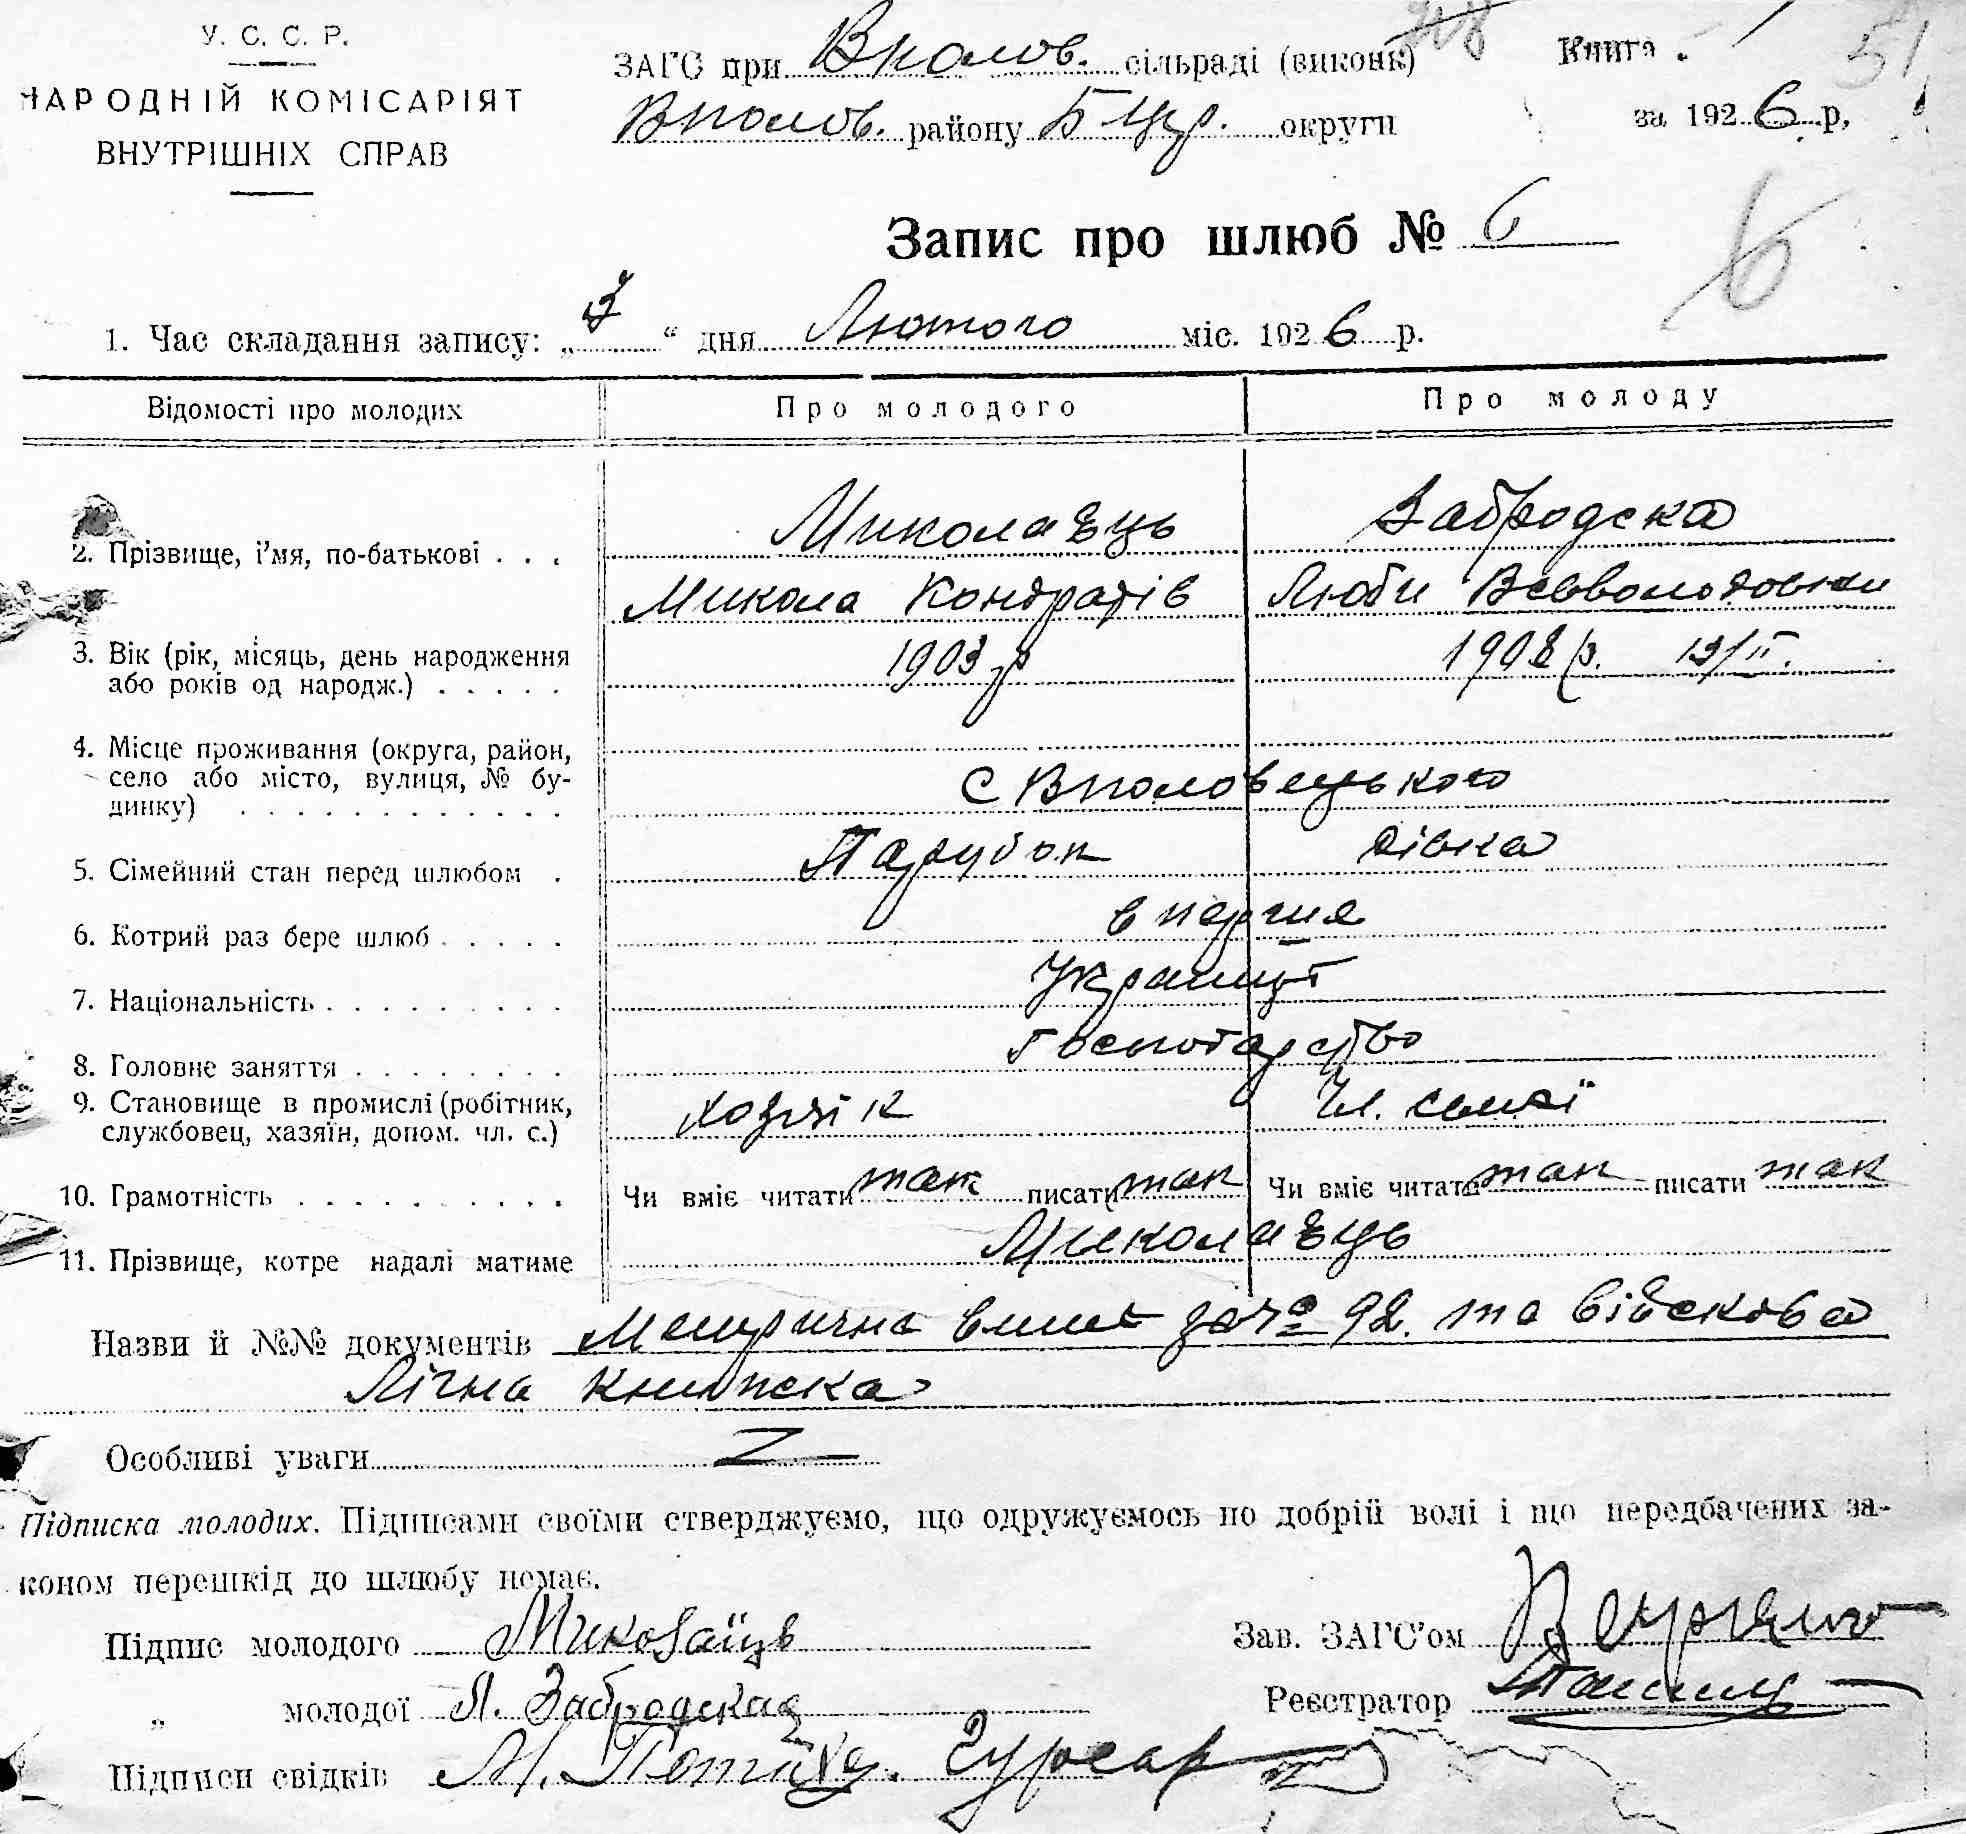 У. С. С. Р.
НАРОДНІЙ КОМІСАРІЯТ
ВНУТРІШНІХ СПРАВ
ЗАГС при Вполов. сільраді (виконк)
Вполов. району БЦер. округи
Книга 1
51
за 1926 р,
Запис про шлюб № 6
6
1. Час складання запису: „3“ дня Лютого міс. 1926 р.
Відомості про молодих Про молодого Про молоду
2. Прізвище, і’мя, по-батькові . . . Миколаєць Забродска
Микола Кондратів Люби Всеволодовни
3. Вік (рік, місяць, день народження 1903 р 1908 р. 19/II.
або років од народж.) . . . . .
4. Місце проживання (округа, район,
село або місто, вулиця, № бу- с Вполовецького
динку) . . . . . . . . . . . .
5. Сімейний стан перед шлюбом . Парубок дівка
6. Котрий раз бере шлюб . . . . . вперше
7. Національність . . . . . . . . . Українці
8. Головне заняття . . . . . . . . Господарство
9. Становище в промислі (робітник, Хозяїн Чл. семї
службовец, хазяїн, допом. чл. с.)
10. Грамотність . . . . . . . . . . Чи вміє читати так писати так Чи вміє читати так писати так
11. Прізвище, котре надалі матиме Миколаєць
Назви й №№ документів Метрична випис за № 92. та військова
Лічна книжка
Особливі уваги —
Підписка молодих. Підписами своїми стверджуємо, що одружуємось по добрій волі і що передбачених за-
коном перешкід до шлюбу немає.
Підпис молодого Миколаїць Зав. ЗАГС’ом
„ молодої Л. Забродская Реєстратор
Підписи свідків М.